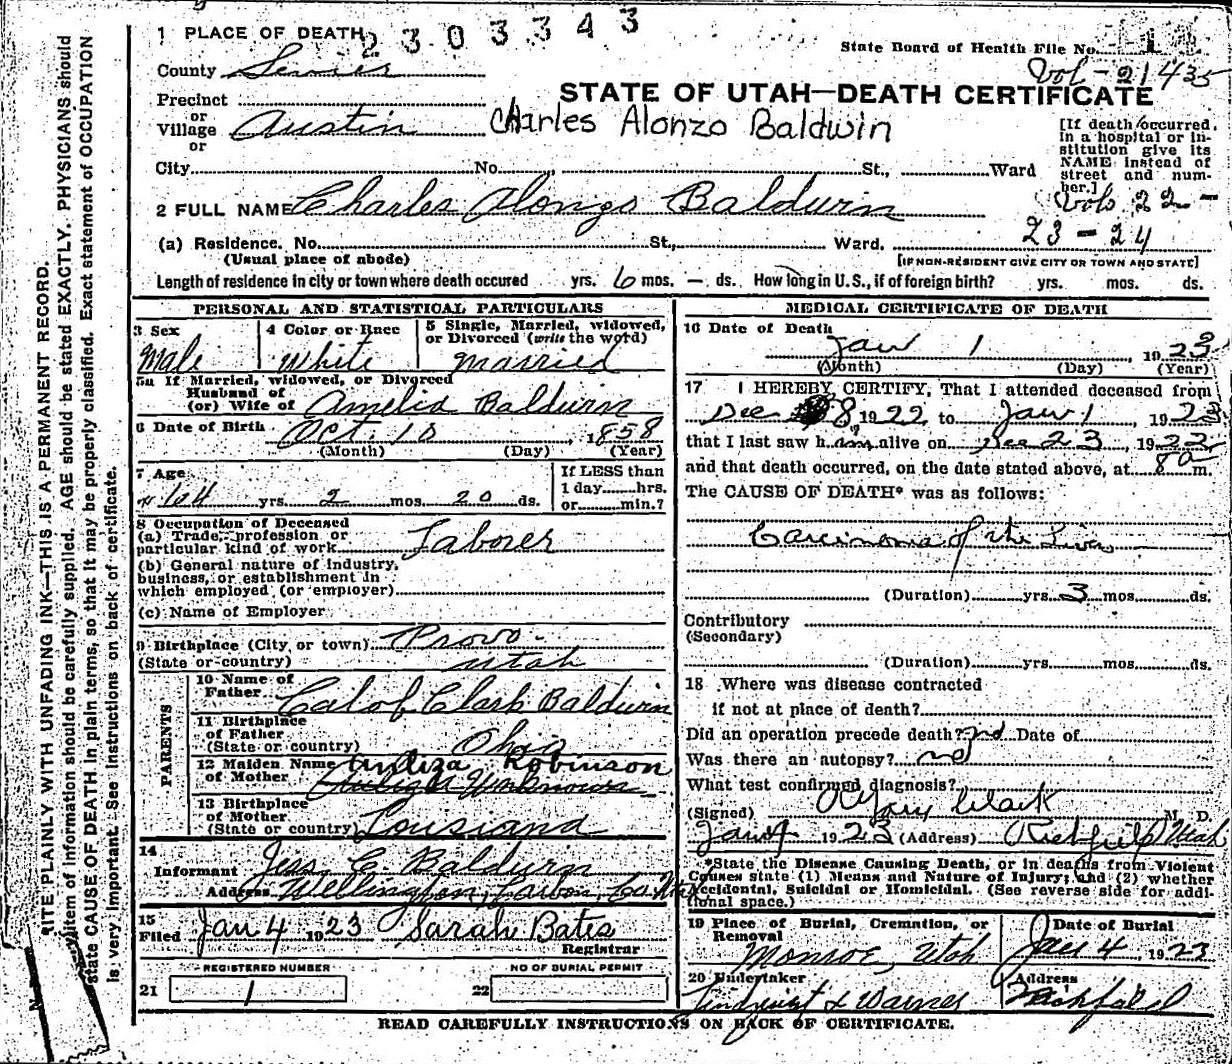 1 PLACE OF DEATH 2303343
State Board of Health File No. 1
County Sevier
Vol - 21 435
STATE OF UTAH—DEATH CERTIFICATE
Precinct
or
Village Austin Charles Alonzo Baldwin
or
[If death occurred in a hospital or institution give its NAME instead of street and number.]
City No. St., Ward
Vols 22 -
23 - 24
2 FULL NAME Charles Alonzo Baldwin
(a) Residence. No. St., Ward.
(Usual place of abode) [IF NON-RESIDENT GIVE CITY OR TOWN AND STATE]
Length of residence in city or town where death occured yrs. 6 mos. - ds. How long in U.S., if of foreign birth? yrs. mos. ds.
PERSONAL AND STATISTICAL PARTICULARS
3 Sex 4 Color or Race 5 Single, Married, widowed,
or Divorced (write the word)
Male White Married
5a If Married, widowed, or Divorced
Husband of
(or) Wife of Amelia Baldwin
6 Date of Birth Oct. 10, 1858
(Month) (Day) (Year)
7 Age If LESS than
64 yrs. 2 mos. 20 ds. 1 day hrs.
or min.?
8 Occupation of Deceased
(a) Trade, profession or
particular kind of work Laborer
(b) General nature of industry,
business, or establishment in
which employed (or employer)
(c) Name of Employer
9 Birthplace (City or town) Provo
(State or country) Utah
PARENTS
10 Name of
Father Calof Clark Baldwin
11 Birthplace
of Father
(State or country) Ohio
12 Maiden Name Robinson
of Mother Unknown
13 Birthplace
of Mother
(State or country) Lousiana
14
Informant Jess C Baldwin
Address Wellington, Carbon, Co.
15
Filed Jan 4 1923 Sarah Bates
Registrar
REGISTERED NUMBER NO OF BURIAL PERMIT
21 1 22
MEDICAL CERTIFICATE OF DEATH
16 Date of Death
Jan 1, 1923
(Month) (Day) (Year)
17 I HEREBY CERTIFY, That I attended deceased from
Dec 8 1922 to Jan 1, 1923
that I last saw him alive on Dec 23, 1922
and that death occurred, on the date stated above, at 8 a m.
The CAUSE OF DEATH* was as follows:
Carcinoma of the Liver
(Duration) yrs. 3 mos. ds.
Contributory
(Secondary)
(Duration) yrs. mos. ds.
18 Where was disease contracted
if not at place of death?
Did an operation precede death? Date of
Was there an autopsy? no
What test confirmed diagnosis?
(Signed) Clark M. D.
Jan 4 1923 (Address) Richfield Utah
*State the Disease Causing Death, or in deaths from Violent
Causes state (1) Means and Nature of Injury; and (2) whether
Accidental, Suicidal or Homicidal. (See reverse side for addi-
tional space.)
19 Place of Burial, Cremation, or Date of Burial
Removal
Monroe, Utah Jan 4, 1923
20 Undertaker Address
Lindquist & Warner Richfield
READ CAREFULLY INSTRUCTIONS ON BACK OF CERTIFICATE.
WRITE PLAINLY WITH UNFADING INK—THIS IS A PERMANENT RECORD.
item of information should be carefully supplied. AGE should be stated EXACTLY. PHYSICIANS should
state CAUSE OF DEATH in plain terms, so that it may be properly classified. Exact statement of OCCUPATION
is very important. See instructions on back of certificate.